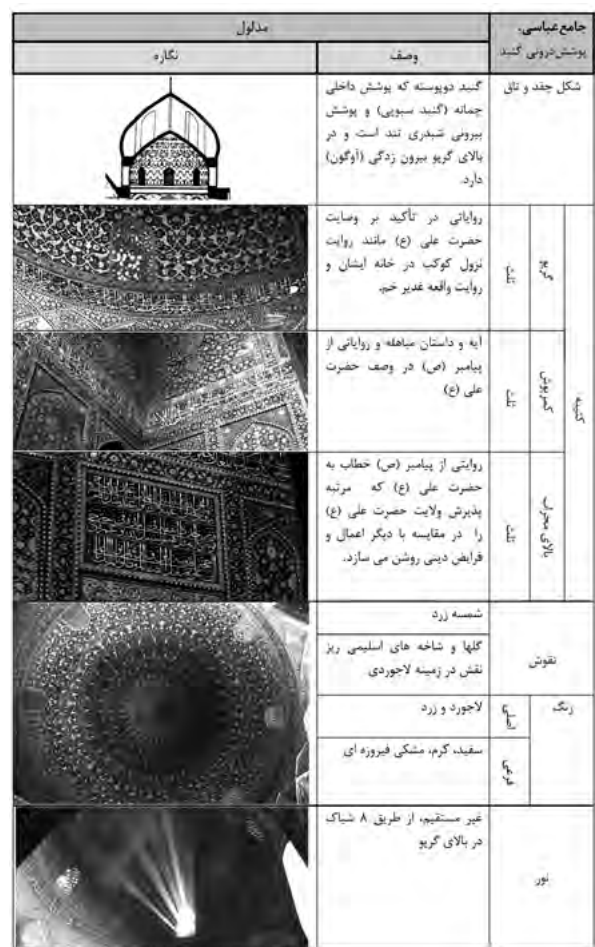 جامع عباسی،
پوشش درونی گنبد
مدلول
وصف
نگاره
شکل چفد و تاق
گنبد دوپوسته که پوشش داخلی
چمانه (گنبد سبویی) و پوشش
بیرونی شبدری تند است و در
بالای گریو بیرون زدگی (آوگون)
دارد.
کتیبه
گریو
ثلث
روایاتی در تأکید بر وصایت
حضرت علی (ع) مانند روایت
نزول کوکب در خانه ایشان و
روایت واقعه غدیر خم.
کمرپوش
ثلث
آیه و داستان مباهله و روایاتی از
پیامبر (ص) در وصف حضرت
علی (ع)
بالای محراب
ثلث
روایتی از پیامبر (ص) خطاب به
حضرت علی (ع) که مرتبه
پذیرش ولایت حضرت علی (ع)
را در مقایسه با دیگر اعمال و
فرایض دینی روشن می سازد.
نقوش
شمسه زرد
گلها و شاخه های اسلیمی ریز
نقش در زمینه لاجوردی
رنگ
اصلی
لاجورد و زرد
فرعی
سفید، کرم، مشکی فیروزه ای
نور
غیر مستقیم، از طریق ۸ شباک
در بالای گریو